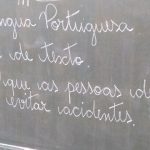 ngua Portuguesa
de texto.
que as pessoas de
evitar acidentes.